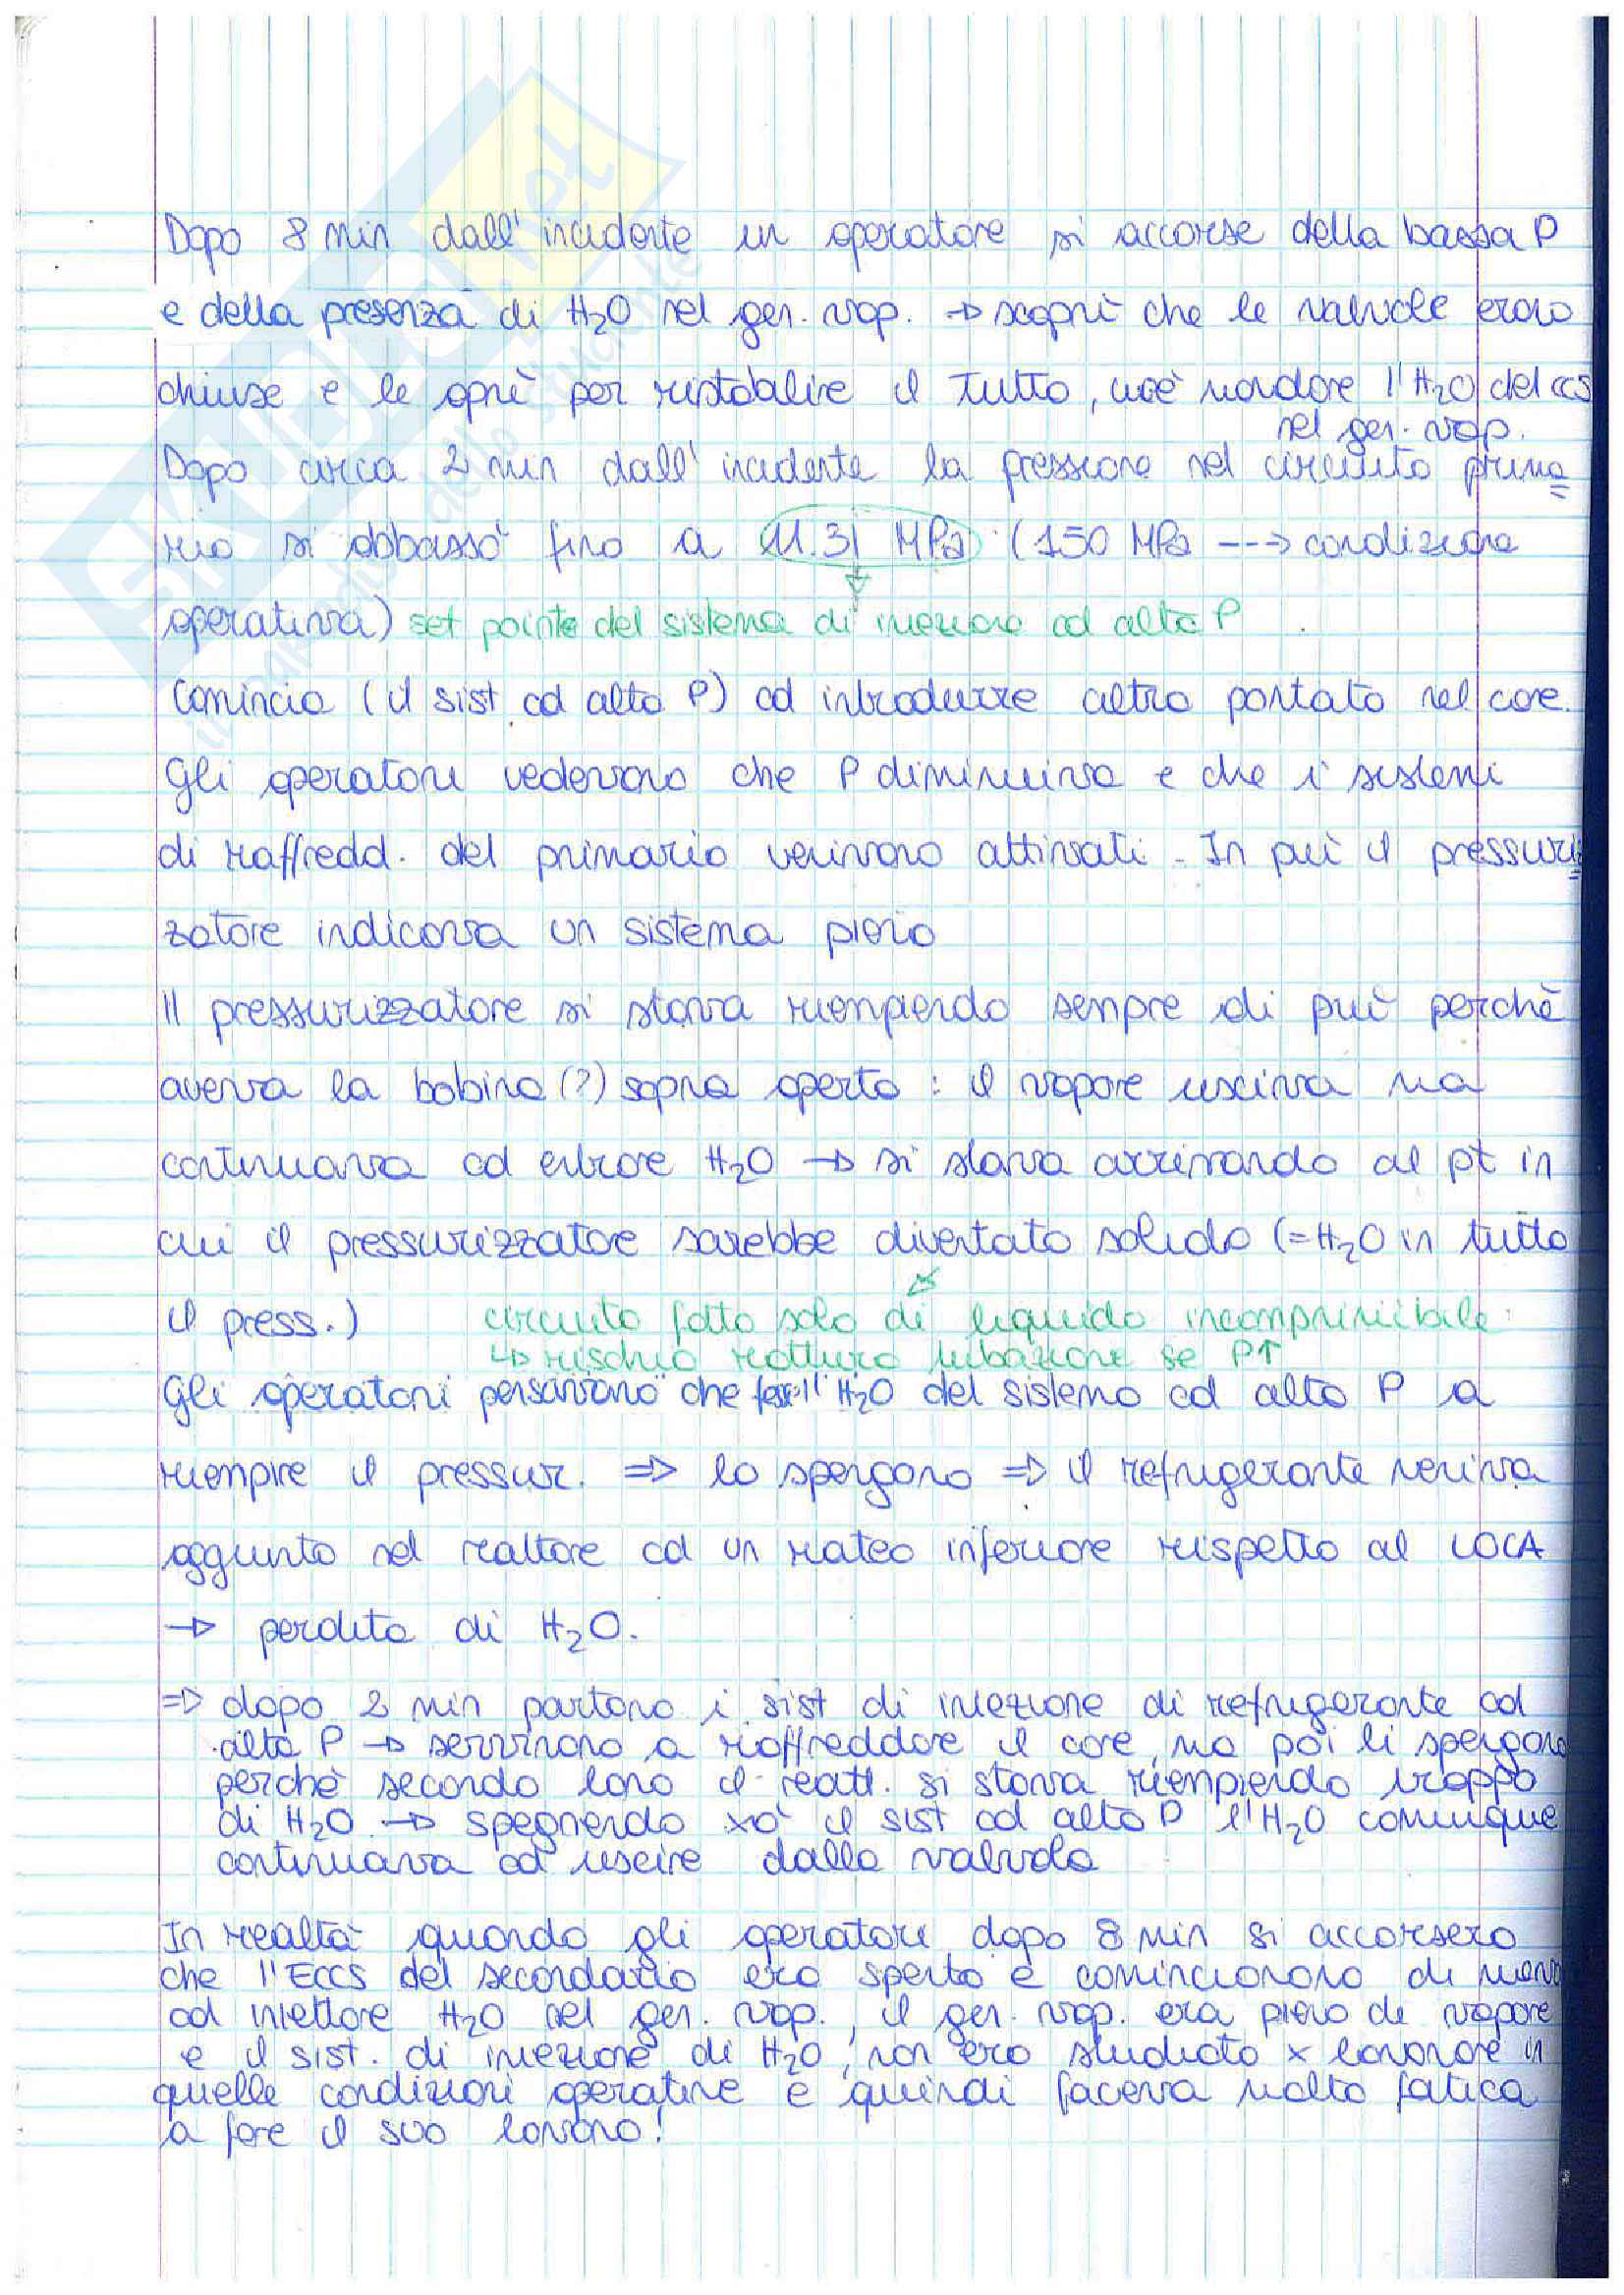 Dopo 8 min dall'incidente un operatore si accorse della bassa P
e della presenza di H₂O nel gen. vap. → scoprì che le valvole erano
chiuse e le aprì per ristabilire il tutto, cioè mandare l'H₂O del ccs
nel gen. vap.
Dopo circa 2 min dall'incidente la pressione nel circuito prima
rio si abbassò fino a 11.31 MPa (150 MPa ---> condizione
operativa) set point del sistema di iniezione ad alta P
Comincia (il sist ad alta P) ad introdurre altra portata nel core.
Gli operatori vedevano che P diminuiva e che i sistemi
di raffredd. del primario venivano attivati. In più il pressuri
zatore indicava un sistema pieno
Il pressurizzatore si stava riempiendo sempre di più perchè
aveva la bobina (?) sopra aperta : il vapore usciva ma
continuava ad entrare H₂O → si stava arrivando al pt in
cui il pressurizzatore sarebbe diventato solido (= H₂O in tutto
il press.) circuito fatto solo di liquido incomprimibile
↳ rischio rottura tubazione se P↑
Gli operatori pensavano che l'H₂O del sistema ad alta P a
riempire il pressur. ⇒ lo spengono ⇒ il refrigerante veniva
aggiunto nel reattore ad un rateo inferiore rispetto al LOCA
→ perdita di H₂O.
⇒ dopo 2 min partono i sist di iniezione di refrigerante ad
alta P → servivano a raffreddare il core, ma poi li spengono
perchè secondo loro il reatt. si stava riempiendo troppo
di H₂O → spegnendo xò il sist ad alta P l'H₂O comunque
continuava ad uscire dalla valvola
In realtà quando gli operatori dopo 8 min si accorsero
che l'ECCS del secondario era spento e cominciarono di nuovo
ad iniettare H₂O nel gen. vap., il gen. vap. era pieno di vapore
e il sist. di iniezione di H₂O, non era studiato x lavorare in
quelle condizioni operative e quindi faceva molta fatica
a fare il suo lavoro!
SKUOLA.net
il paradiso dello studente